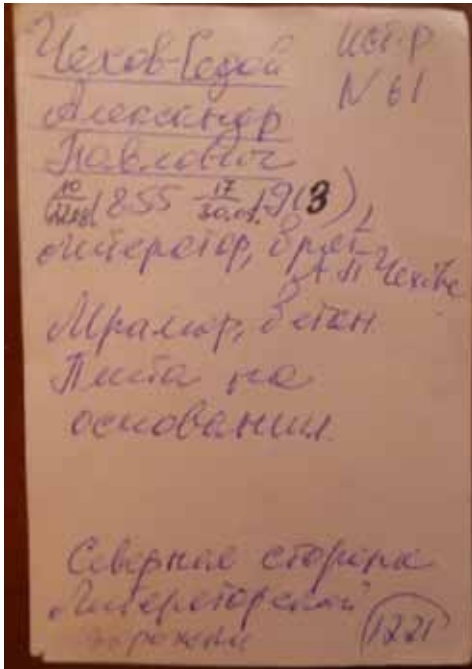 Чехов-Седой
ИСТ-Р
Александр
N 61
Павлович
1855 17 19(3),
литератор, брат
А П Чехова
Мрамор, бетон
Плита на
основании
Северная сторона
"Литераторской"
дорожки
1221